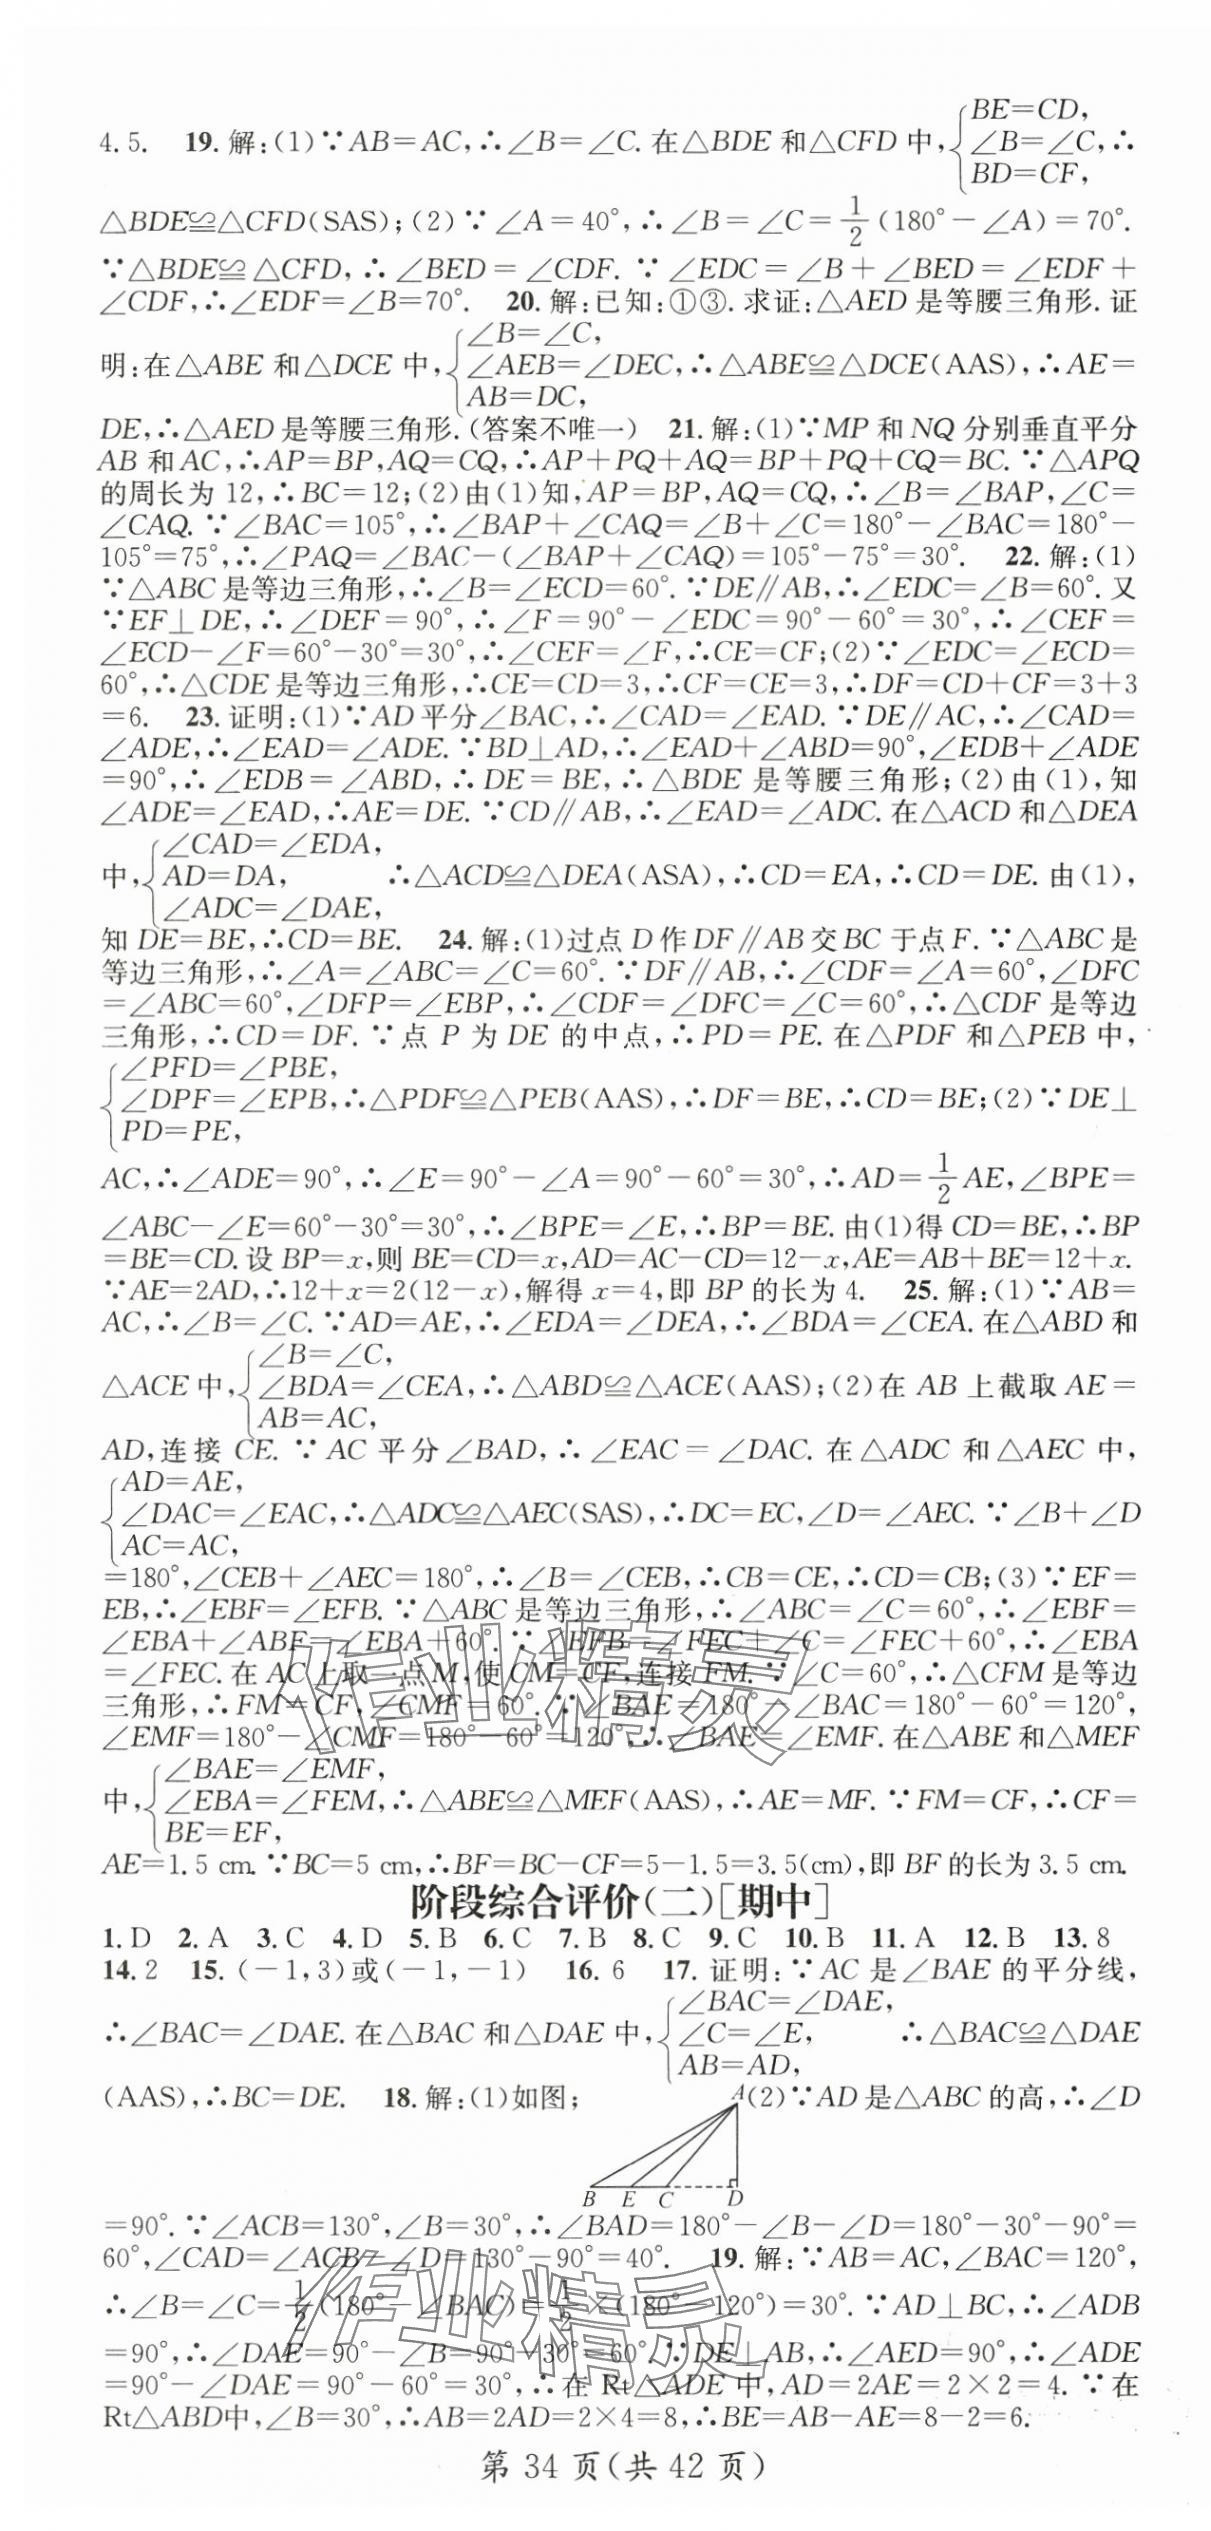 4.5. 19.解:(1)∵AB=AC,∴∠B=∠C.在△BDE和△CFD中,{BE=CD, ∠B=∠C, BD=CF,∴
△BDE≌△CFD(SAS);(2)∵∠A=40°,∴∠B=∠C=1/2(180°-∠A)=70°.
∵△BDE≌△CFD,∴∠BED=∠CDF.∵∠EDC=∠B+∠BED=∠EDF+
∠CDF,∴∠EDF=∠B=70°. 20.解:已知:①③.求证:△AED是等腰三角形.证
明:在△ABE和△DCE中,{∠B=∠C, ∠AEB=∠DEC, AB=DC,∴△ABE≌△DCE(AAS),∴AE=
DE,∴△AED是等腰三角形.(答案不唯一) 21.解:(1)∵MP和NQ分别垂直平分
AB和AC,∴AP=BP,AQ=CQ,∴AP+PQ+AQ=BP+PQ+CQ=BC.∵△APQ
的周长为12,∴BC=12;(2)由(1)知,AP=BP,AQ=CQ,∴∠B=∠BAP,∠C=
∠CAQ.∵∠BAC=105°,∴∠BAP+∠CAQ=∠B+∠C=180°-∠BAC=180°-
105°=75°,∴∠PAQ=∠BAC-(∠BAP+∠CAQ)=105°-75°=30°. 22.解:(1)
∵△ABC是等边三角形,∴∠B=∠ECD=60°.∵DE∥AB,∴∠EDC=∠B=60°.又
∵EF⊥DE,∴∠DEF=90°,∴∠F=90°-∠EDC=90°-60°=30°,∴∠CEF=
∠ECD-∠F=60°-30°=30°,∴∠CEF=∠F,∴CE=CF;(2)∵∠EDC=∠ECD=
60°,∴△CDE是等边三角形,∴CE=CD=3,∴CF=CE=3,∴DF=CD+CF=3+3
=6. 23.证明:(1)∵AD平分∠BAC,∴∠CAD=∠EAD.∵DE∥AC,∴∠CAD=
∠ADE,∴∠EAD=∠ADE.∵BD⊥AD,∴∠EAD+∠ABD=90°,∠EDB+∠ADE
=90°,∴∠EDB=∠ABD,∴DE=BE,∴△BDE是等腰三角形;(2)由(1),知
∠ADE=∠EAD,∴AE=DE.∵CD∥AB,∴∠EAD=∠ADC.在△ACD和△DEA
中,{∠CAD=∠EDA, AD=DA, ∠ADC=∠DAE, ∴△ACD≌△DEA(ASA),∴CD=EA,∴CD=DE.由(1),
知DE=BE,∴CD=BE. 24.解:(1)过点D作DF∥AB交BC于点F.∵△ABC是
等边三角形,∴∠A=∠ABC=∠C=60°.∵DF∥AB,∴∠CDF=∠A=60°,∠DFC
=∠ABC=60°,∠DFP=∠EBP,∴∠CDF=∠DFC=∠C=60°,∴△CDF是等边
三角形,∴CD=DF.∵点P为DE的中点,∴PD=PE.在△PDF和△PEB中,
{∠PFD=∠PBE, ∠DPF=∠EPB, PD=PE,∴△PDF≌△PEB(AAS),∴DF=BE,∴CD=BE;(2)∵DE⊥
AC,∴∠ADE=90°,∴∠E=90°-∠A=90°-60°=30°,∴AD=1/2AE,∠BPE=
∠ABC-∠E=60°-30°=30°,∴∠BPE=∠E,∴BP=BE.由(1)得CD=BE,∴BP
=BE=CD.设BP=x,则BE=CD=x,AD=AC-CD=12-x,AE=AB+BE=12+x.
∵AE=2AD,∴12+x=2(12-x),解得x=4,即BP的长为4. 25.解:(1)∵AB=
AC,∴∠B=∠C.∵AD=AE,∴∠EDA=∠DEA,∴∠BDA=∠CEA.在△ABD和
△ACE中,{∠B=∠C, ∠BDA=∠CEA, AB=AC,∴△ABD≌△ACE(AAS);(2)在AB上截取AE=
AD,连接CE.∵AC平分∠BAD,∴∠EAC=∠DAC.在△ADC和△AEC中,
{AD=AE, ∠DAC=∠EAC, AC=AC,∴△ADC≌△AEC(SAS),∴DC=EC,∠D=∠AEC.∵∠B+∠D
=180°,∠CEB+∠AEC=180°,∴∠B=∠CEB,∴CB=CE,∴CD=CB;(3)∵EF=
EB,∴∠EBF=∠EFB.∵△ABC是等边三角形,∴∠ABC=∠C=60°,∴∠EBF=
∠EBA+∠ABF=∠EBA+60°.∵∠EFB=∠FEC+∠C=∠FEC+60°,∴∠EBA
=∠FEC.在AC上取一点M,使CM=CF,连接FM.∵∠C=60°,∴△CFM是等边
三角形,∴FM=CF,∠CMF=60°.∵∠BAE=180°-∠BAC=180°-60°=120°,
∠EMF=180°-∠CMF=180°-60°=120°,∴∠BAE=∠EMF.在△ABE和△MEF
中,{∠BAE=∠EMF, ∠EBA=∠FEM, BE=EF,∴△ABE≌△MEF(AAS),∴AE=MF.∵FM=CF,∴CF=
AE=1.5 cm.∵BC=5 cm,∴BF=BC-CF=5-1.5=3.5(cm),即BF的长为3.5 cm.
阶段综合评价(二)[期中]
1.D 2.A 3.C 4.D 5.B 6.C 7.B 8.C 9.C 10.B 11.A 12.B 13.8
14.2 15.(-1,3)或(-1,-1) 16.6 17.证明:∵AC是∠BAE的平分线,
∴∠BAC=∠DAE.在△BAC和△DAE中,{∠BAC=∠DAE, ∠C=∠E, AB=AD, ∴△BAC≌△DAE
(AAS),∴BC=DE. 18.解:(1)如图; A (2)∵AD是△ABC的高,∴∠D
B E C D
=90°.∵∠ACB=130°,∠B=30°,∴∠BAD=180°-∠B-∠D=180°-30°-90°=
60°,∠CAD=∠ACB-∠D=130°-90°=40°. 19.解:∵AB=AC,∠BAC=120°,
∴∠B=∠C=1/2(180°-∠BAC)=1/2×(180°-120°)=30°.∵AD⊥BC,∴∠ADB
=90°,∴∠DAE=90°-∠B=90°-30°=60°.∵DE⊥AB,∴∠AED=90°,∴∠ADE
=90°-∠DAE=90°-60°=30°,∴在Rt△ADE中,AD=2AE=2×2=4.∵在
Rt△ABD中,∠B=30°,∴AB=2AD=2×4=8,∴BE=AB-AE=8-2=6.
第34页(共42页)
作业精灵
作业精灵